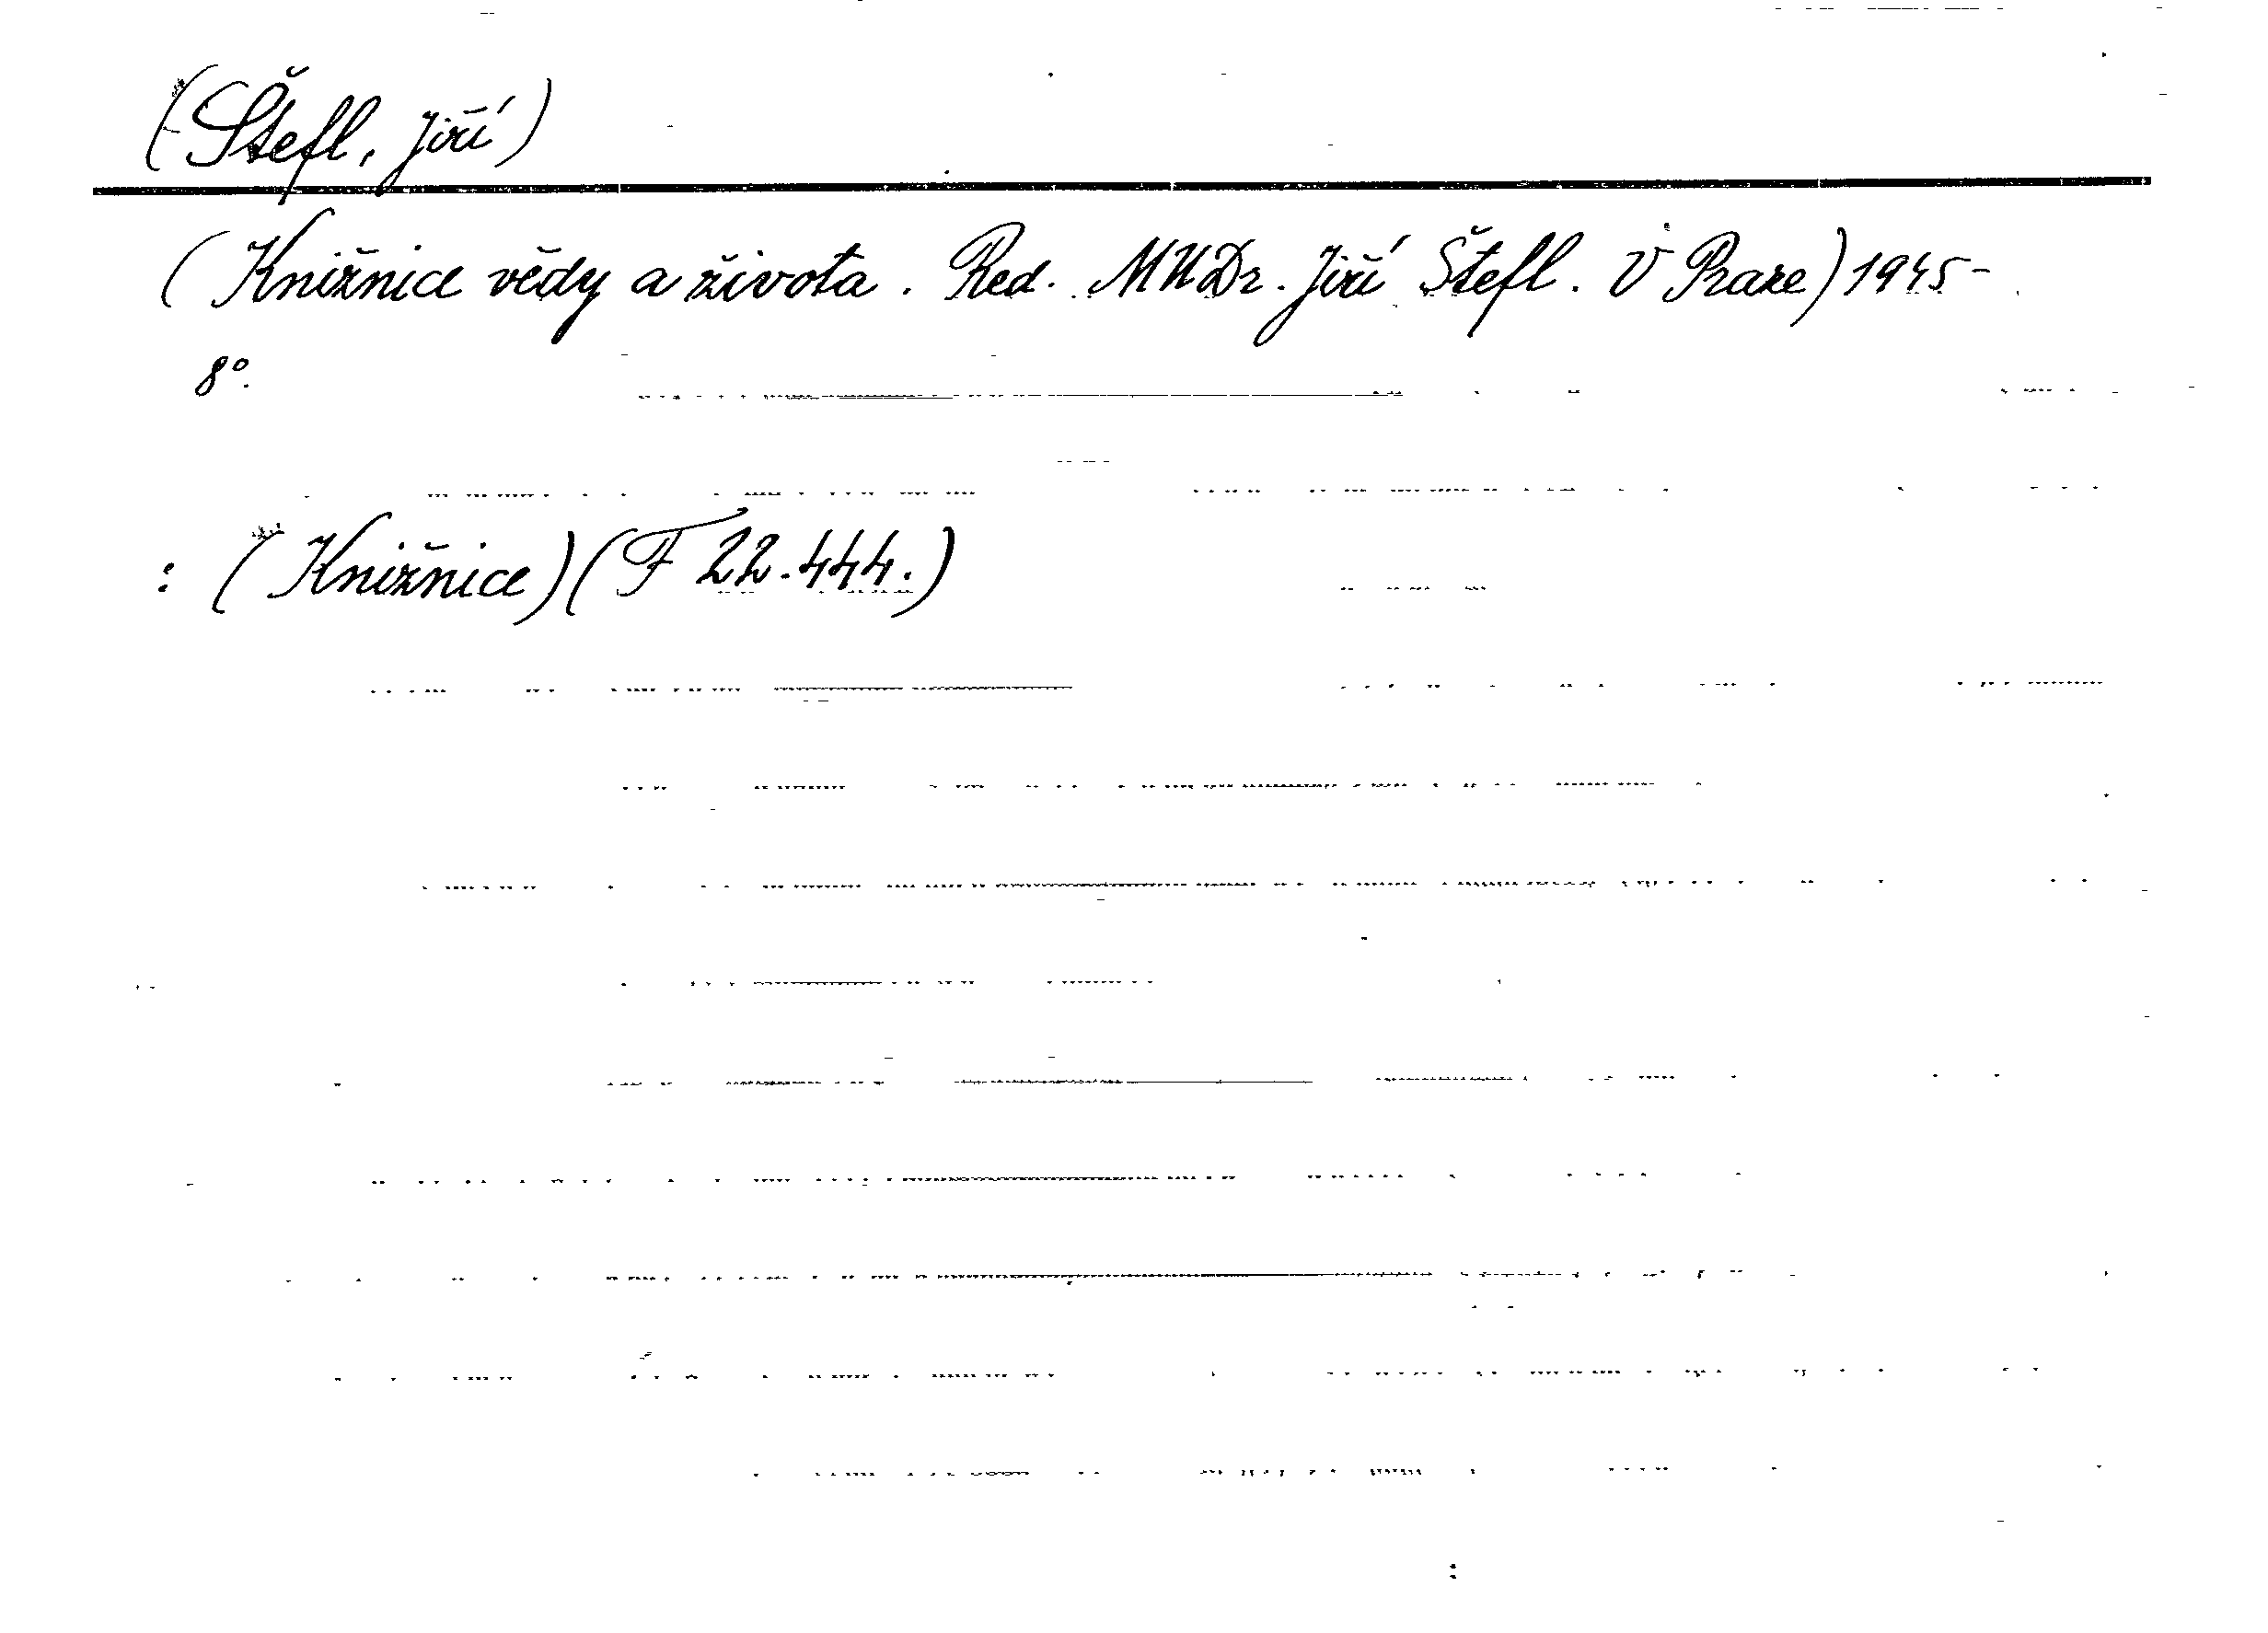 (Štefl, Jiří)
(Knižnice vědy a života. Red. MUDr. Jiří Štefl. V Praze) 1945-
8°.
: (Knižnice) (F 22.444.)